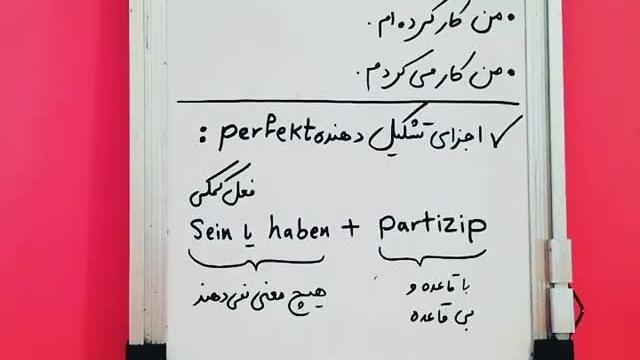 • من کار کرده ام.
• من کار می کردم.
✓ اجزای تشکیل دهنده perfekt :
فعل کمکی
Sein یا haben + partizip
هیچ معنی نمی دهند
با قاعده و
بی قاعده